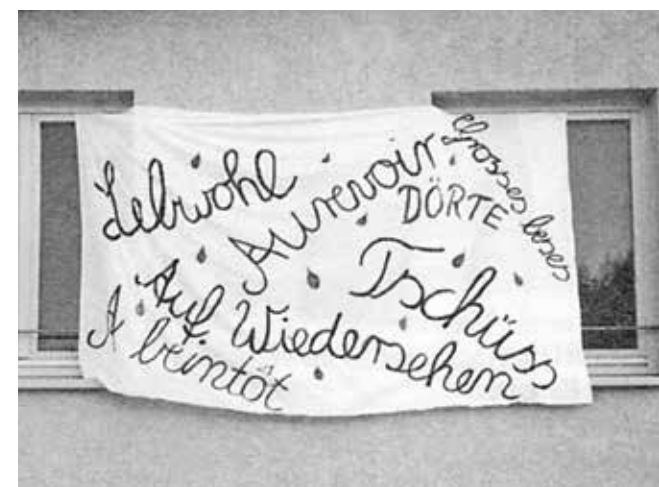 Lebwohl
Aurevoir
grosses beses
DÖRTE
Tschüss
Auf Wiedersehen
A beintôt